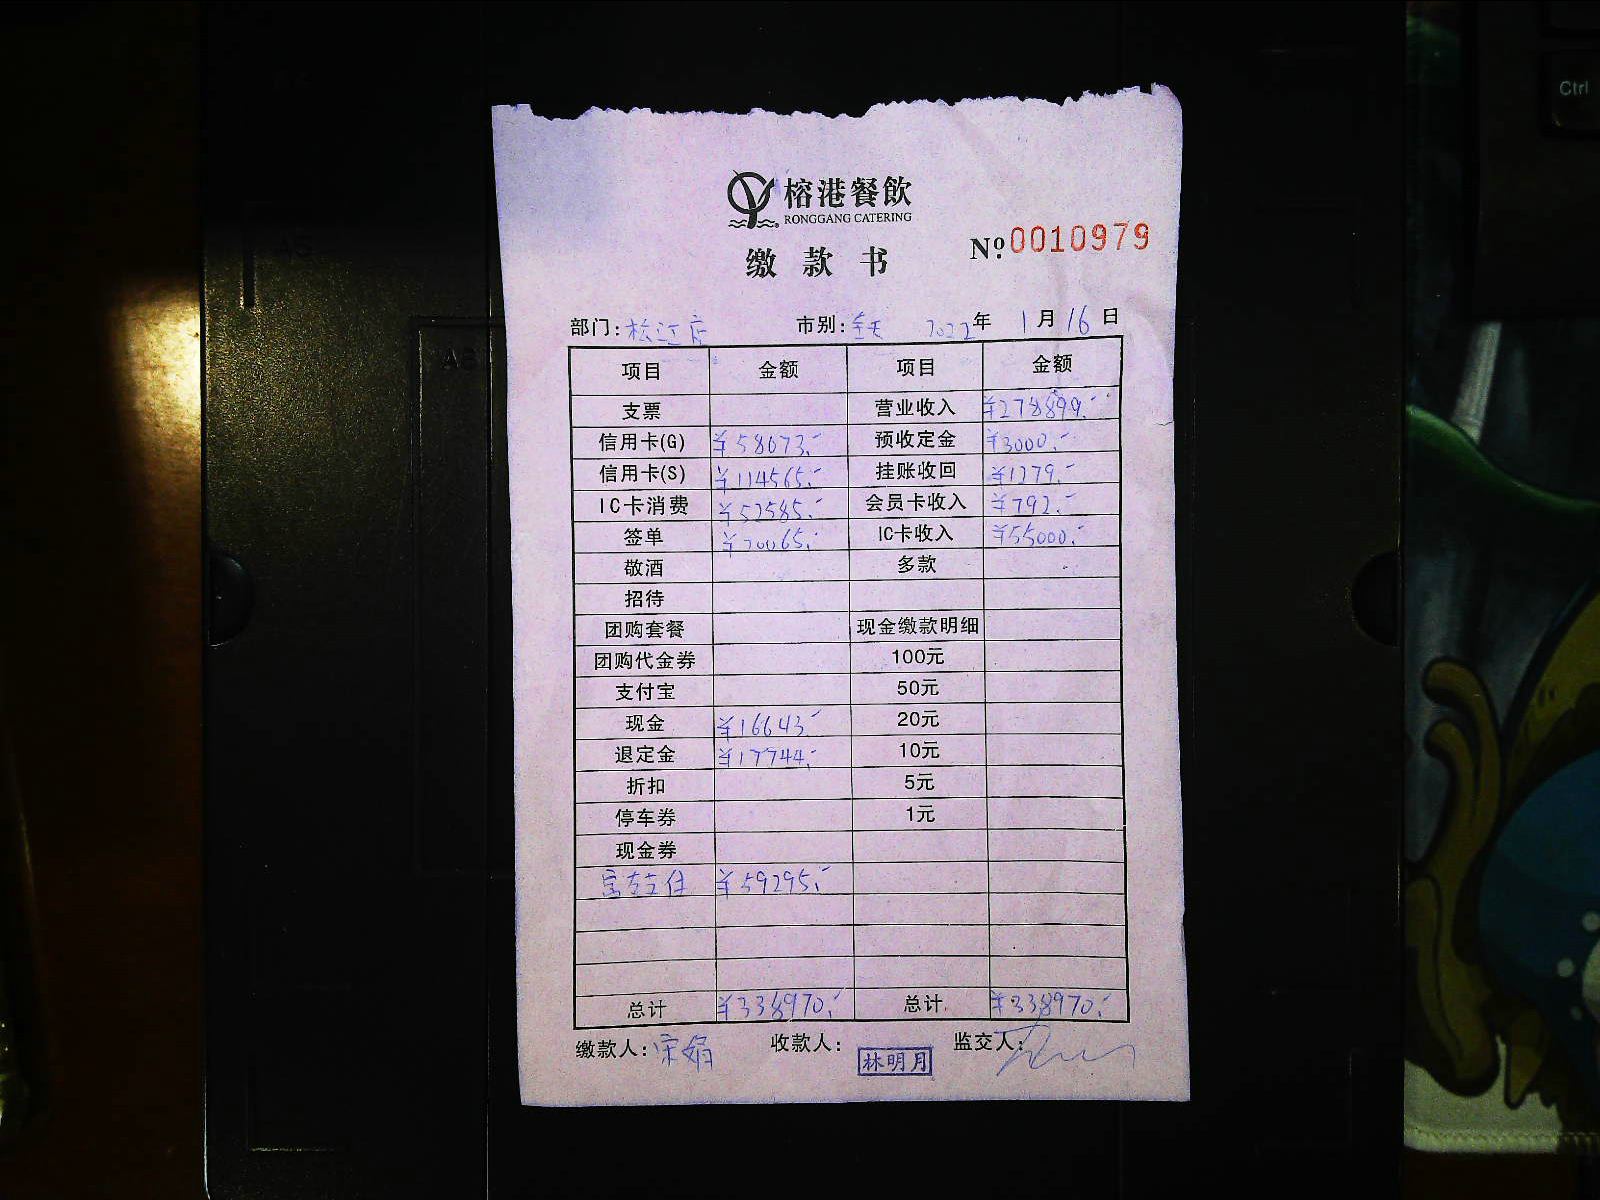 榕港餐飲
RONGGANG CATERING
缴款书
Nº:0010979
部门: 松江店 市别: 全天 2022年 1月16日
项目 金额 项目 金额
支票 营业收入 ¥278899.-
信用卡(G) ¥58073.- 预收定金 ¥3000.-
信用卡(S) ¥114565.- 挂账收回 ¥1279.-
IC卡消费 ¥52585.- 会员卡收入 ¥792.-
签单 ¥20065.- IC卡收入 ¥55000.-
敬酒 多款
招待
团购套餐 现金缴款明细
团购代金券 100元
支付宝 50元
现金 ¥16643.- 20元
退定金 ¥17744.- 10元
折扣 5元
停车券 1元
现金券
富友支付 ¥59295.-
总计 ¥338970.- 总计 ¥338970.-
缴款人: 宋娟 收款人: 林明月 监交人:
Ctrl